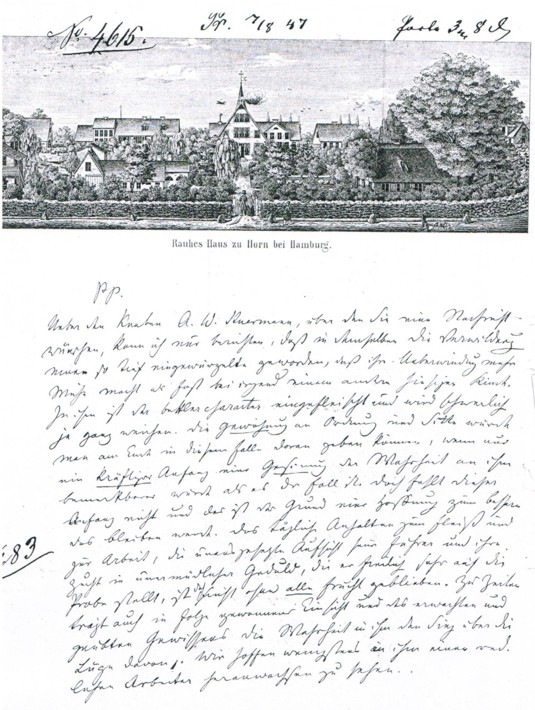 No. 4615. 7/8 47 Porto 3 8
Rauhes Haus zu Horn bei Hamburg.
pp.
Ueber den Knaben A. W. über den Sie eine Nachricht
wünschen, kann ich nur berichten, daß in demselben die Verwilderung
einen so tief eingewurzelte geworden, daß ihre Ueberwindung mehr
Mühe macht als fast bei irgend einem andern hiesigen Kinde.
In ihm ist der Bettlercharakter eingefleischt und wird schwerlich
je ganz weichen. Die Gewöhnung an Ordnung und Sitte würde
man am Ende in diesem Falle daran geben können, wenn nur
ein kräftiger Anfang einer Gesinnung der Wahrheit an ihm
bemerkbarer würde als es der Fall ist. Doch fehlt dieser
Anfang nicht und das ist der Grund einer Hoffnung zum bessern
das bleiben werde. Das tägliche Anhalten zum Fleiß und
zur Arbeit, die unausgesetzte Aufsicht sein und ihre
Zucht in unermüdlicher Geduld, die er freilich sehr auf die
Probe stellt, ist doch nicht ohne alle Frucht geblieben. Zu Zeiten
trägt auch in Folge gewonnener Einsicht und des erwachten und
geübten Gewissens die Wahrheit in ihm den Sieg über die
Lüge davon; wir hoffen wenigstens in ihm einen red-
lichen Arbeiter heranwachsen zu sehen..
83